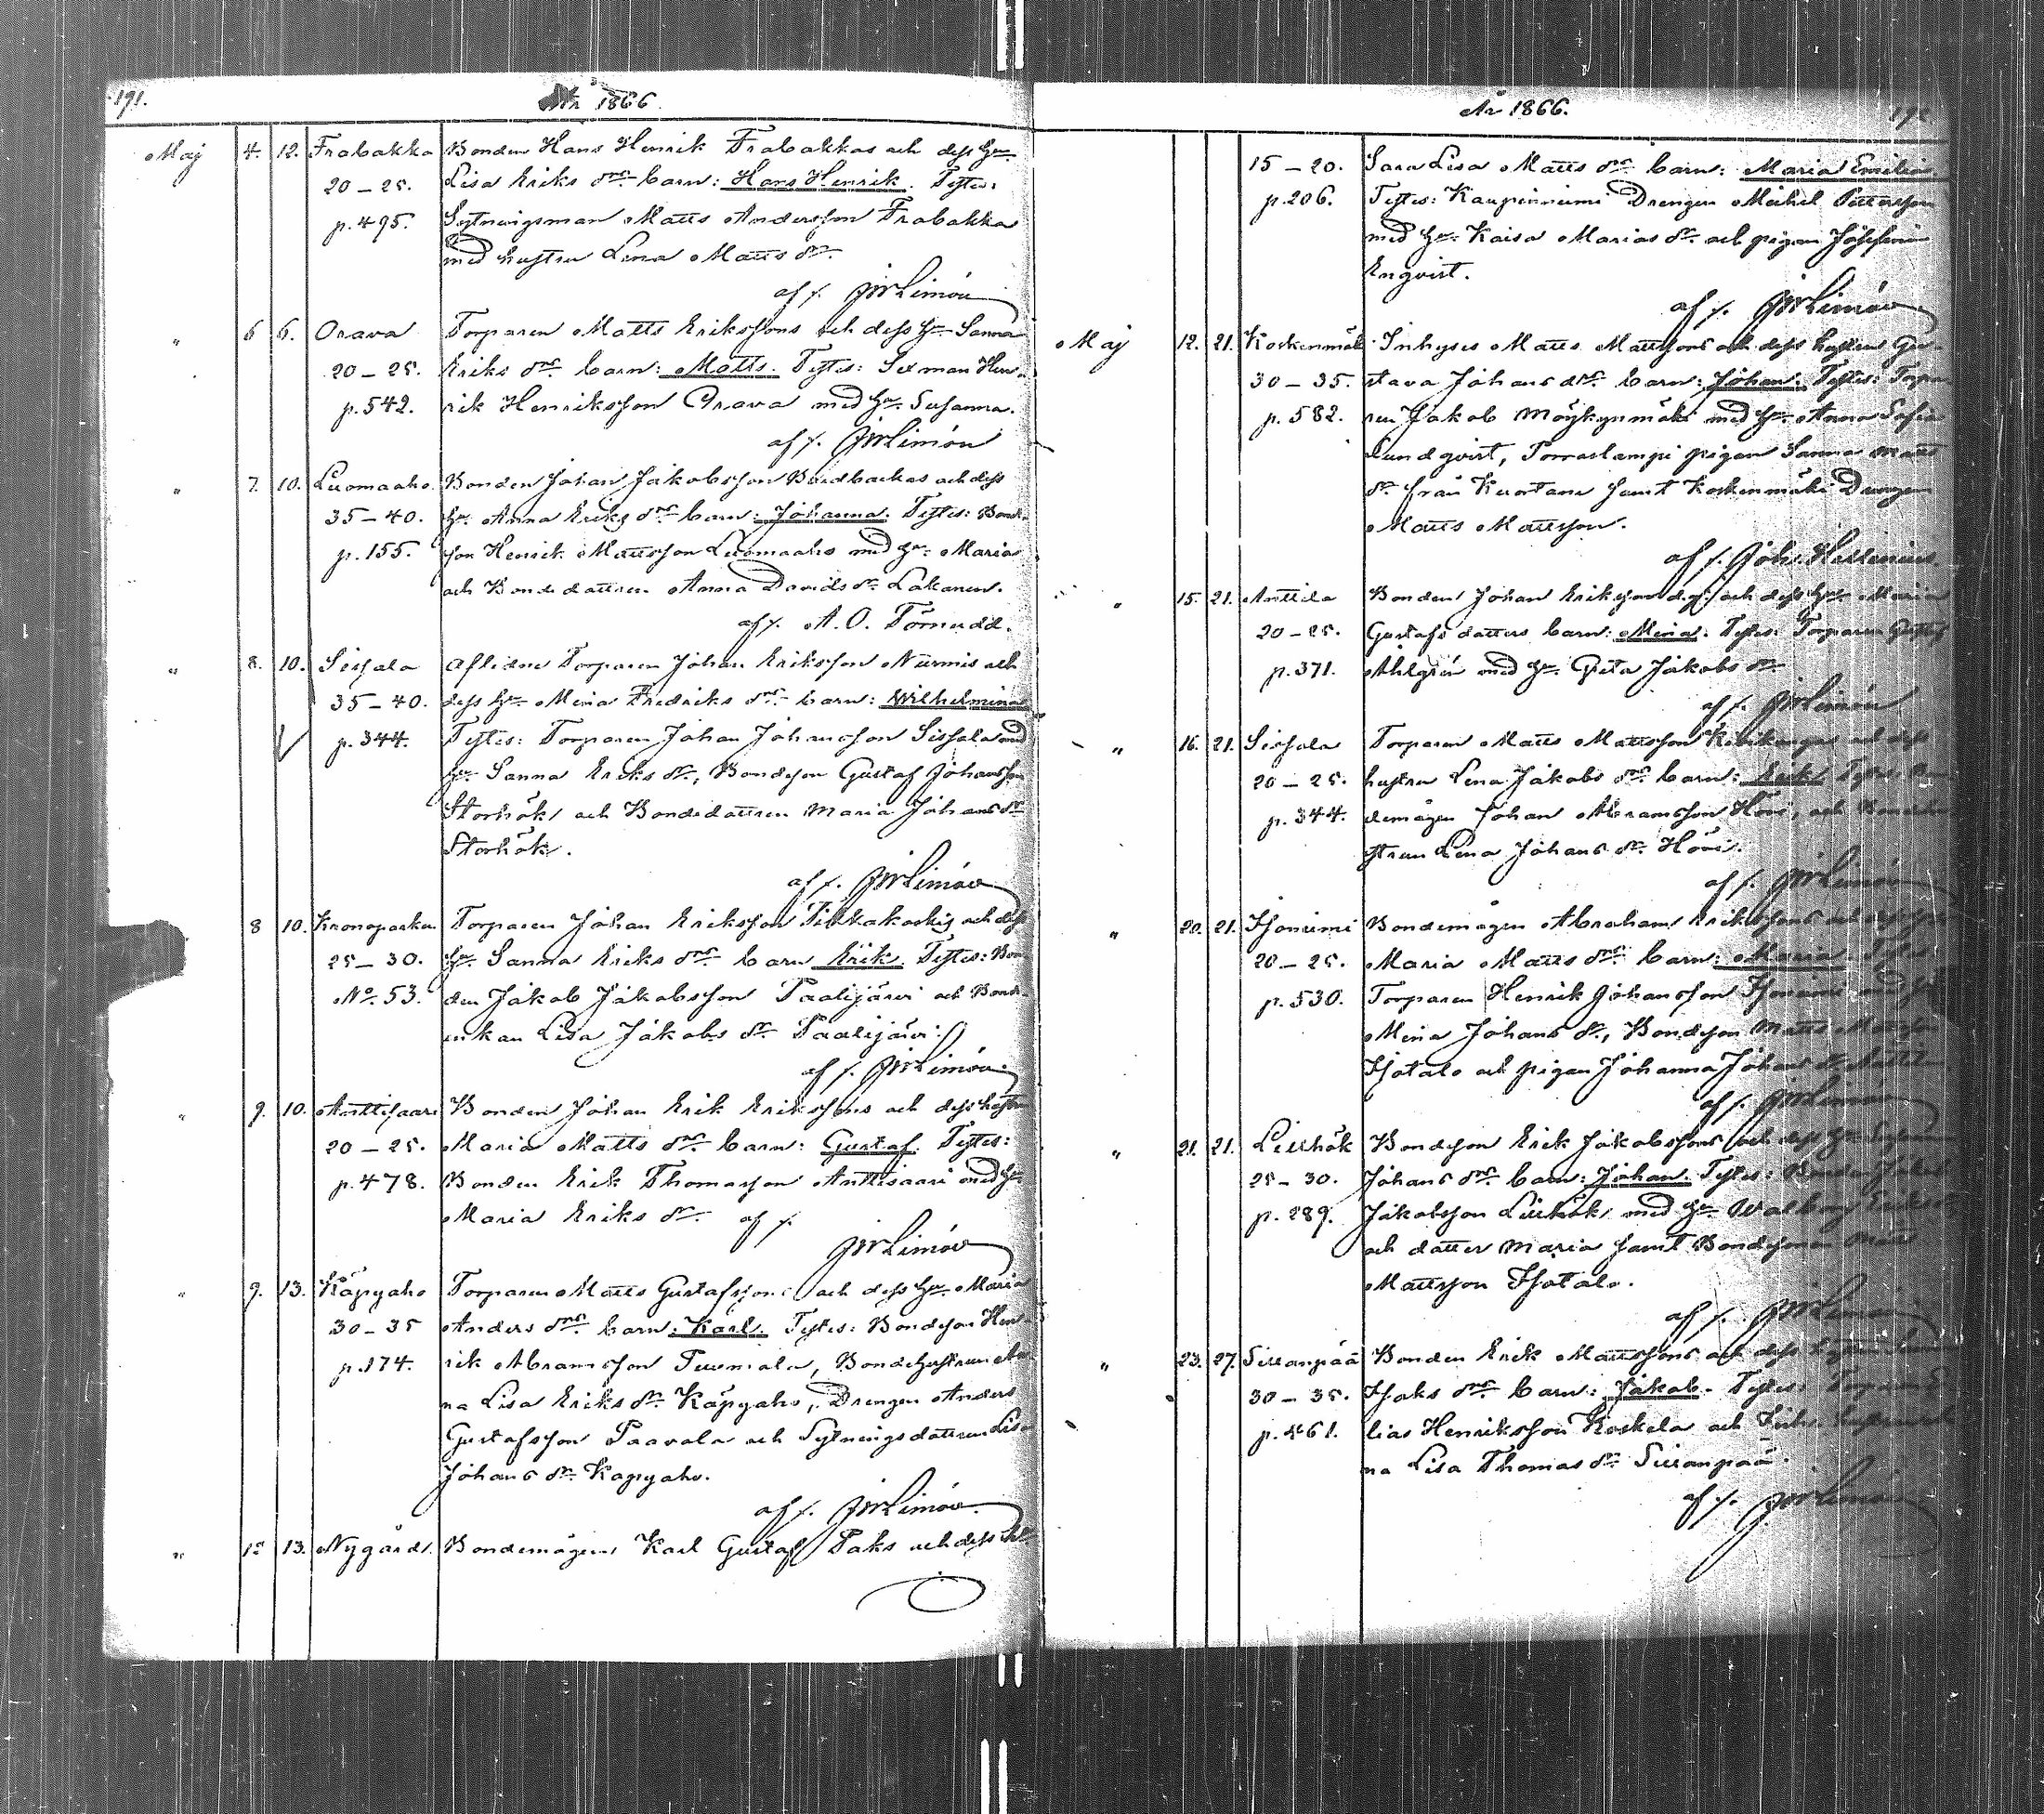 191.
År 1866.
Maj 4. 12. Frabakka Bonden Hans Henrik Frabakkas och dess hu
20–25. Lisa Eriks drs barn: Hans Henrik. Testes:
p. 495. Sytningsman Matts Andersson Frabakka
med hustru Lena Matts dr.
af f. JWLimón
" 6 6. Orava Torparen Matts Erikssons och dess hu Sanna
20–25. Eriks drs barn: Matts. Testes: Sexman Hen-
p. 542. rik Henriksson Orava med hu. Susanna.
af f. JWLimón
" 7. 10. Luomaaho. Bonden Johan Jakobsson Bredbackas och dess
35–40. hu. Anna Eriks drs barn: Johanna. Testes: Bond-
p. 155. son Henrik Mattsson Luomaaho med hu. Maria
och Bondedattren Anna Davids dr. Lakanen.
af f. A. O. Törnudd.
" 8. 10. Sissala Aflidne Torparen Johan Eriksson Nurmis och
35–40. dess hu Mina Fredriks drs barn: Wilhelmina
p. 344. Testes: Torparen Johan Johansson Sissala med
hu Sanna Eriks dr, Bondeson Gustaf Johansson
Storhök, och Bondedattren Maria Johans dr
Storhök.
af f. JWLimón
8 10. Kronoparken Torparen Johan Eriksson och dess
25–30. hu Sanna Eriks drs barn Erik. Testes: Bon
No. 53. den Jakob Jakobsson Paalijärvi och Bond-
enkan Lisa Jakobs dr Paalijärvi
af f. JWLimón.
" 9. 10. Anttisaari Bonden Johan Erik Erikssons och dess hustru
20–25. Maria Matts drs barn: Gustaf. Testes:
p. 478. Bonden Erik Thomasson Anttisaari med hu
Maria Eriks dr. af f.
JWLimón
" 9. 13. Käpyaho Torparen Matts Gustafssons och dess hu Maria
30–35 Anders drs barn: Karl. Testes: Bondeson Hen-
p. 174. rik Abramsson Tuomala, Bondehustrun
na Lisa Eriks dr Käpyaho, Drengen Anders
Gustafsson Paavola och Sytningsdattren Lisa
Johans dr. Käpyaho.
af f. JWLimón.
" 12 13. Nygård. Bondemågen Karl Gustaf Paks och dess
År 1866.
192
15–20. Sara Lisa Matts drs barn: Maria Emilia.
p. 206. Testes: Kaupinniemi Drengen Michel Pettersson
med hu. Kaisa Marias dr. och pigan Josefina
Engvist.
af f. JWLimón
Maj 12. 21. Koskenmäki Inhyses Matts Mattssons och dess hustrus Gu-
30–35. stava Johans drs barn: Johan. Testes: Torpa
p. 582. ren Jakob Möykynmäki med hu Anna Sofia
Lundqvist, Porraslampi pigan Sanna Matts
dr från Kuortane samt Koskenmäki Drengen
Matts Mattsson.
af f. Joh. Hellenius.
" 15. 21. Anttila Bonden Johan Erikssons d.y. och dess hus Maria
20–25. Gustafs datters barn: Mina. Testes: Torparen Gustaf
p. 371. Ahlgrén med hu Greta Jakobs dr
af f. JWLimón
" 16. 21. Sissala Torparen Matts Mattsson och dess
20–25. hustru Lena Jakobs drs barn: Erik. Testes:
p. 344. demågen Johan Abramsson Höri, och Bondehu
strun Lena Johans dr. Höri.
af f. JWLimón
" 20. 21. Isoniemi Bondemågen Abraham Erikssons och dess hus
20–25. Maria Matts drs barn: Maria. Testes
p. 530. Torparen Henrik Johansson Isoniemi med hu
Mina Johans dr, Bondeson Matts Mattsson
Isotalo och pigan Johanna Johans dr
af f. JWLimón
" 21. 21. Lillhök Bondeson Erik Jakobssons och dess hus
25–30. Johans drs barn: Johan. Testes: Bonden Jakob
p. 289. Jakobsson Lillhök, med hu Walborg Eriks
och datter Maria samt Bondesonen Matts
Mattsson Isotalo.
af f. JWLimón
" 23. 27. Siiranpää Bonden Erik Mattssons och dess
30–35. Isaks drs barn: Jakob. Testes: Torparen E
p. 461. lias Henriksson Koskela och Inh. hustrun
na Lisa Thomas dr Siiranpää.
af f. JWLimón